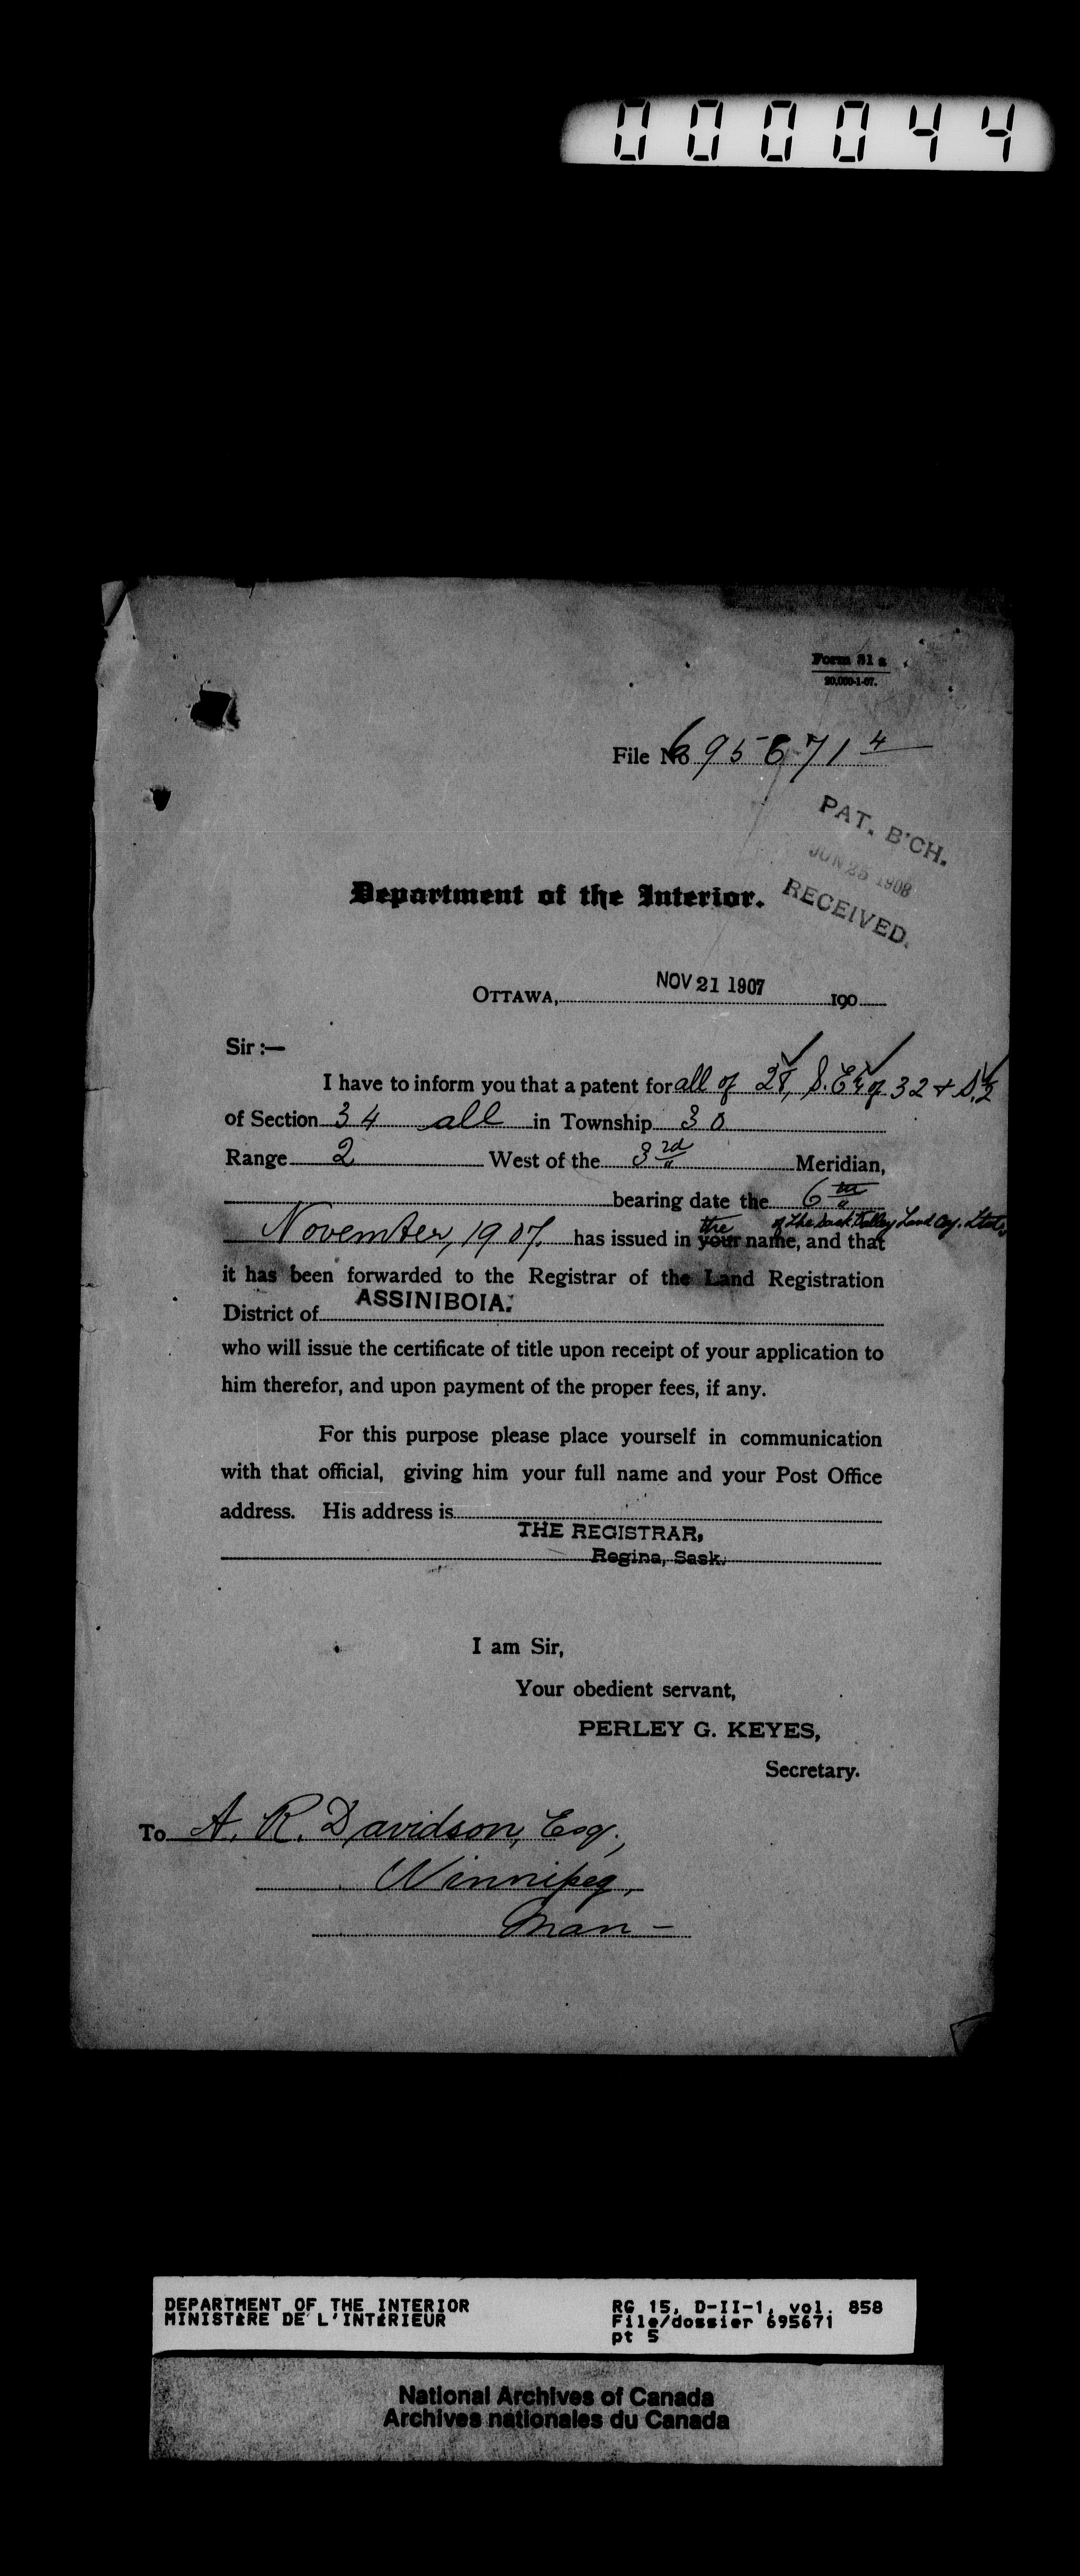 000044
Form 81 a
20,000-1-07.
File No 695671 4
PAT. B'CH.
JUN 25 1908
RECEIVED.
Department of the Interior.
OTTAWA, NOV 21 1907 190
Sir :—
I have to inform you that a patent for all of 28, S.E¼ of 32 & S.½
of Section 34 all in Township 30
Range 2 West of the 3rd Meridian,
bearing date the 6th
of the Sask Valley Land Coy. Ltd.
November, 1907. has issued in your the name, and that
it has been forwarded to the Registrar of the Land Registration
District of ASSINIBOIA.
who will issue the certificate of title upon receipt of your application to
him therefor, and upon payment of the proper fees, if any.
For this purpose please place yourself in communication
with that official, giving him your full name and your Post Office
address. His address is
THE REGISTRAR,
Regina, Sask.
I am Sir,
Your obedient servant,
PERLEY G. KEYES,
Secretary.
To A. R. Davidson, Esq.,
Winnipeg,
Man —
DEPARTMENT OF THE INTERIOR
MINISTÈRE DE L'INTÉRIEUR
RG 15, D-II-1, vol. 858
File/dossier 695671
pt 5
National Archives of Canada
Archives nationales du Canada